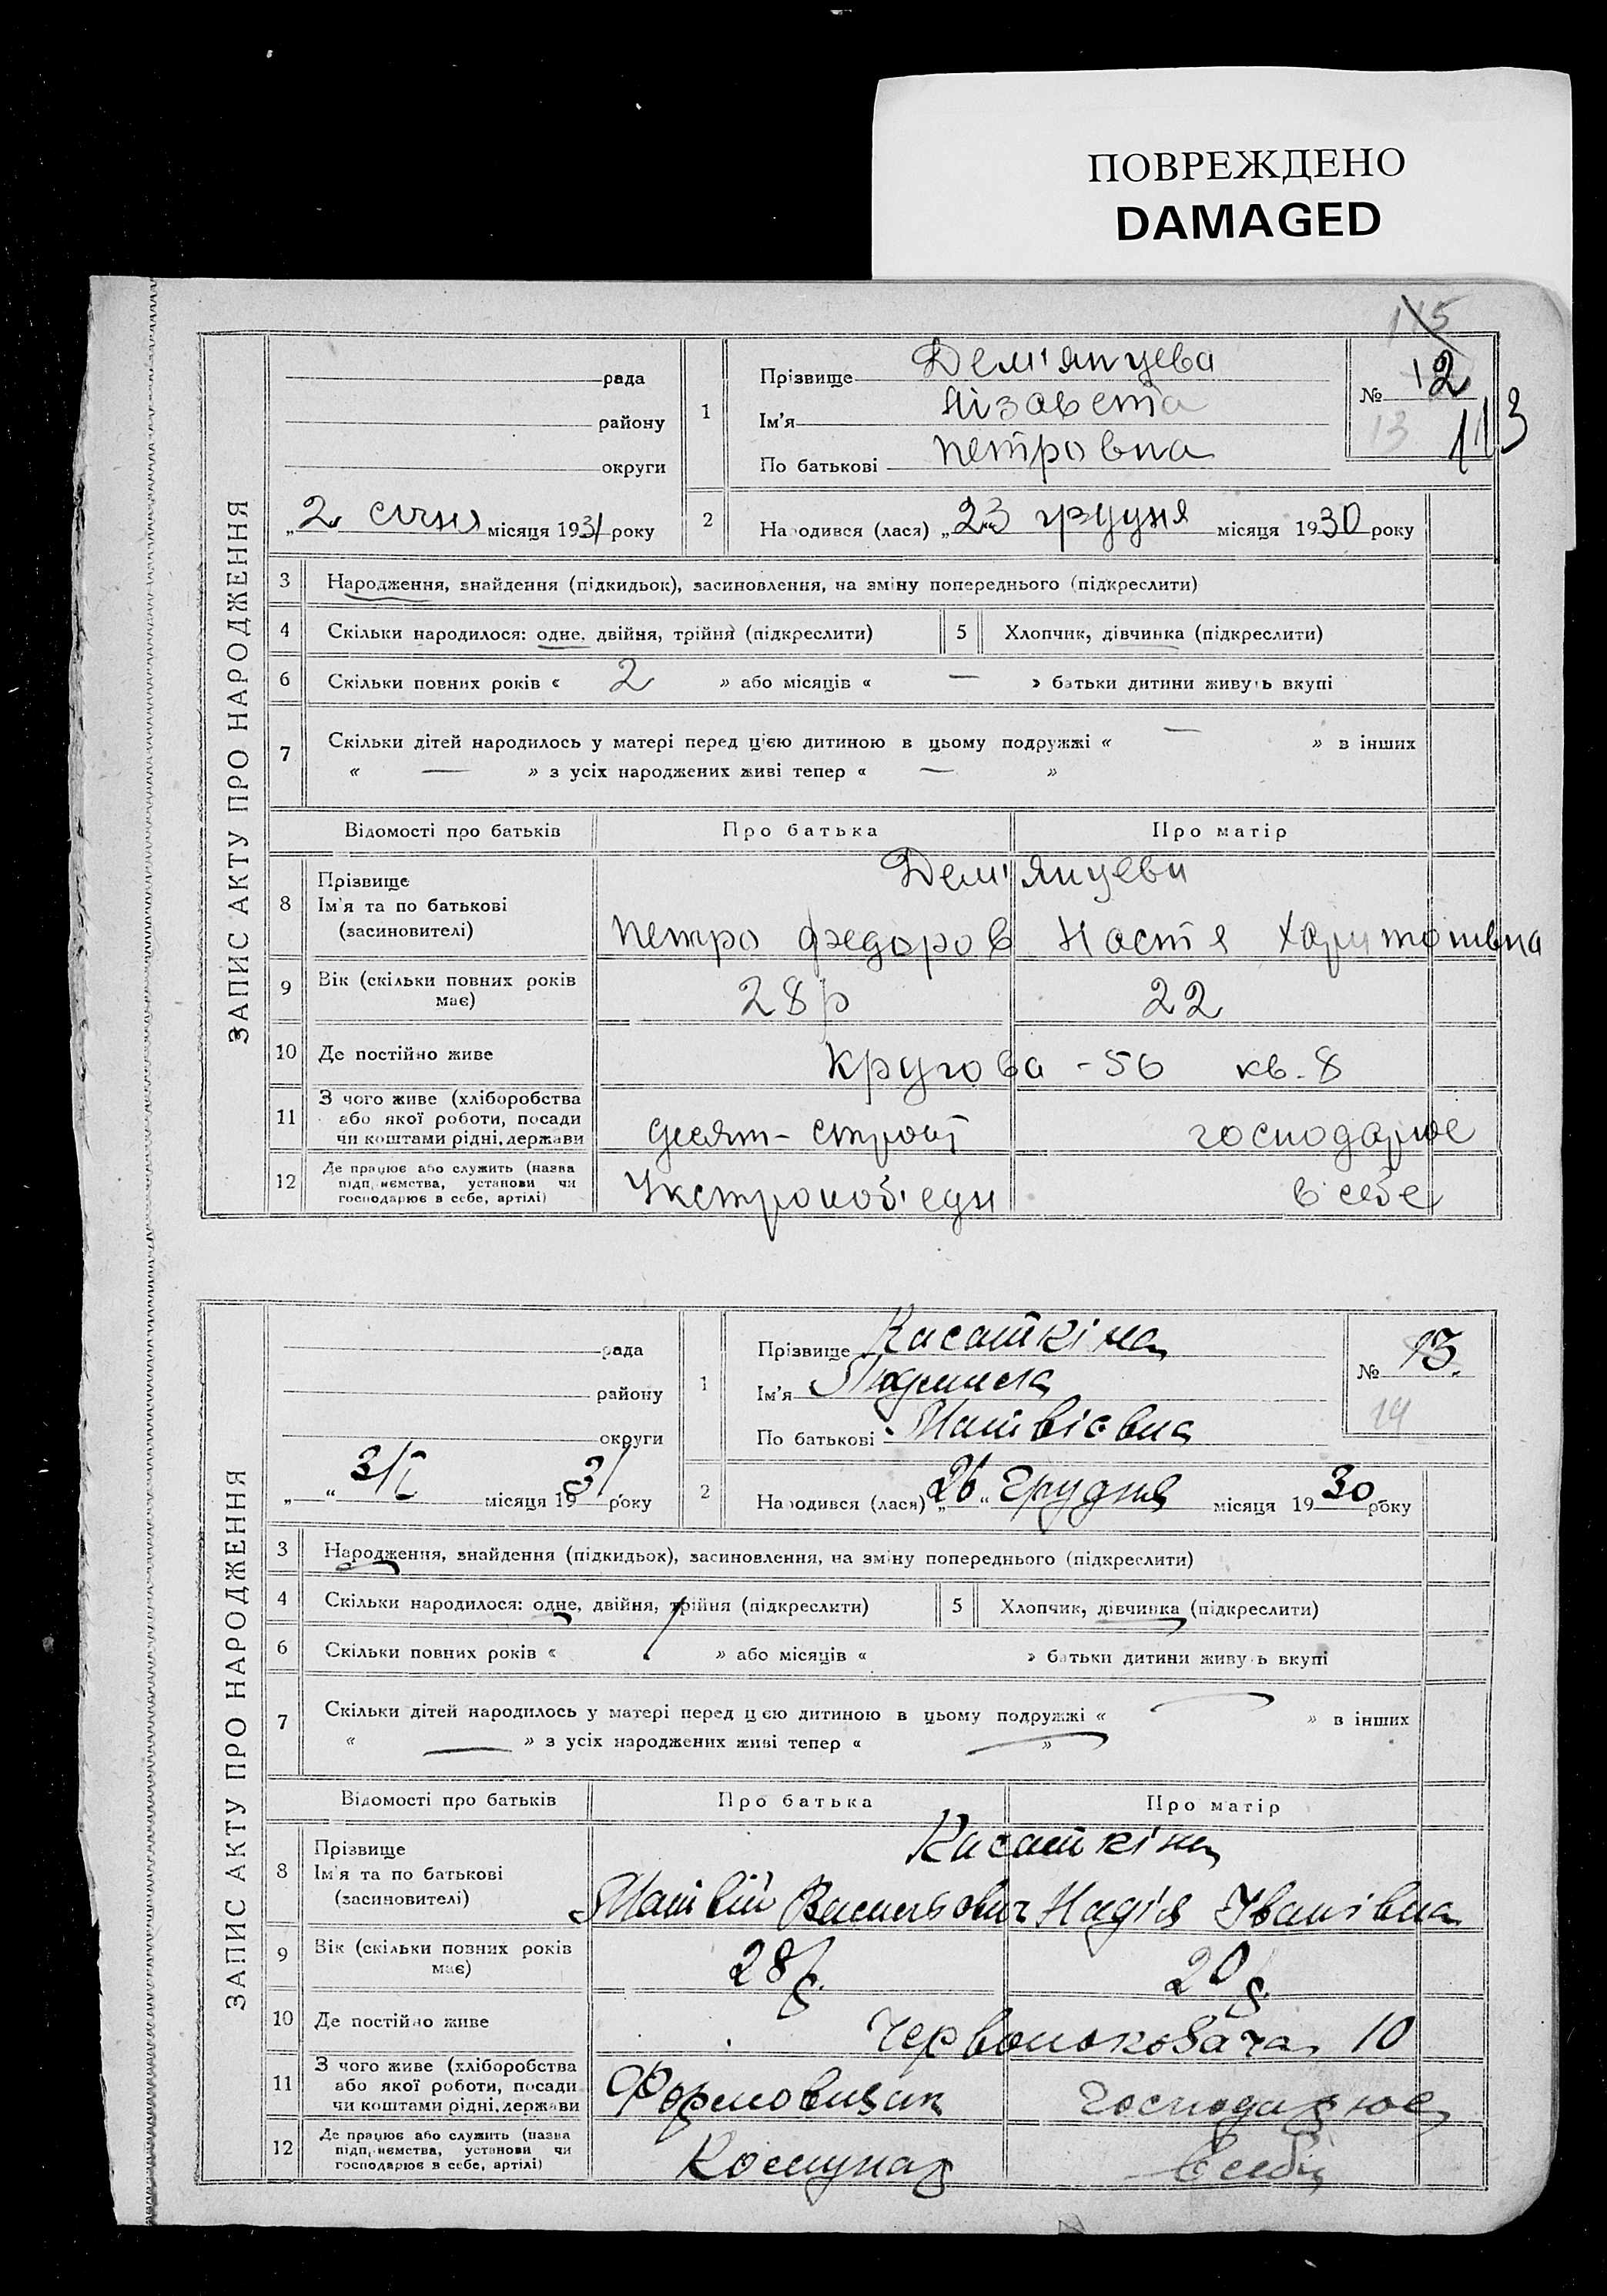 ПОВРЕЖДЕНО
DAMAGED
115
ЗАПИС АКТУ ПРО НАРОДЖЕННЯ
рада
району
округи
„2 січня місяця 1931 року
1
Прізвище Дем'янцева
Ім'я Лізавета
По батькові Петровна
№ 12
13
113
2
Народився (лася) „23 грудня місяця 1930 року
3 Народження, знайдення (підкидьок), засиновлення, на зміну попереднього (підкреслити)
4 Скільки народилося: одне, двійня, трійня (підкреслити) 5 Хлопчик, дівчинка (підкреслити)
6 Скільки повних років « 2 » або місяців « — » батьки дитини живуть вкупі
7 Скільки дітей народилось у матері перед цією дитиною в цьому подружжі « — » в інших
« — » з усіх народжених живі тепер « — »
Відомості про батьків Про батька Про матір
8 Прізвище
Ім'я та по батькові
(засиновителі)
Дем'янцеви
Петро Федоров Настя Харитонівна
9 Вік (скільки повних років
має)
28 р 22
10 Де постійно живе Кругова - 56 кв. 8
11 З чого живе (хліборобства
або якої роботи, посади
чи коштами рідні, держави
десят- строит господарює
12 Де працює або служить (назва
підприємства, установи чи
господарює в себе, артілі)
в себе
ЗАПИС АКТУ ПРО НАРОДЖЕННЯ
рада
району
округи
„ “ 3/I місяця 1931 року
1
Прізвище Касаткіна
Ім'я Людмила
По батькові Матвієвна
№ 13.
14
2
Народився (лася) „26“ Грудня місяця 1930 року
3 Народження, знайдення (підкидьок), засиновлення, на зміну попереднього (підкреслити)
4 Скільки народилося: одне, двійня, трійня (підкреслити) 5 Хлопчик, дівчинка (підкреслити)
6 Скільки повних років « 1 » або місяців « » батьки дитини живуть вкупі
7 Скільки дітей народилось у матері перед цією дитиною в цьому подружжі « — » в інших
« — » з усіх народжених живі тепер « — »
Відомості про батьків Про батька Про матір
8 Прізвище
Ім'я та по батькові
(засиновителі)
Касаткіни
Матвій Васильович Надія Іванівна
9 Вік (скільки повних років
має)
28 р. 20 р.
10 Де постійно живе Червонокозача 10
11 З чого живе (хліборобства
або якої роботи, посади
чи коштами рідні, держави
Формовщик господарює
12 Де працює або служить (назва
підприємства, установи чи
господарює в себе, артілі)
Комунар в себе